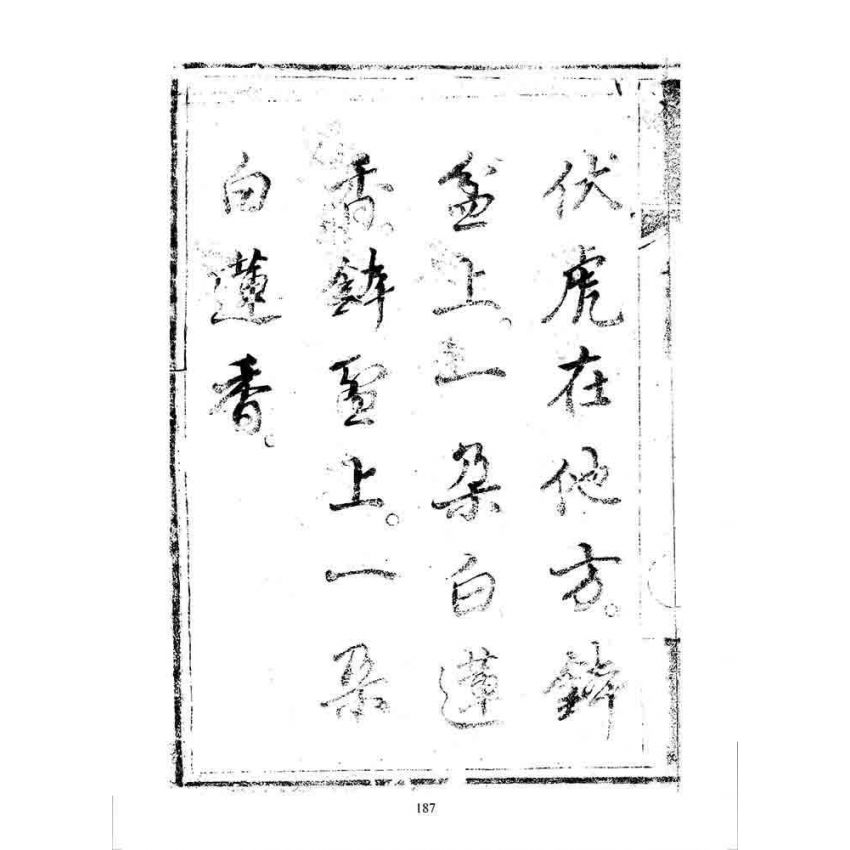 伏虎在他方。鉢
盆上。一朵白蓮
香。鉢盂上。一朵
白蓮香。
187